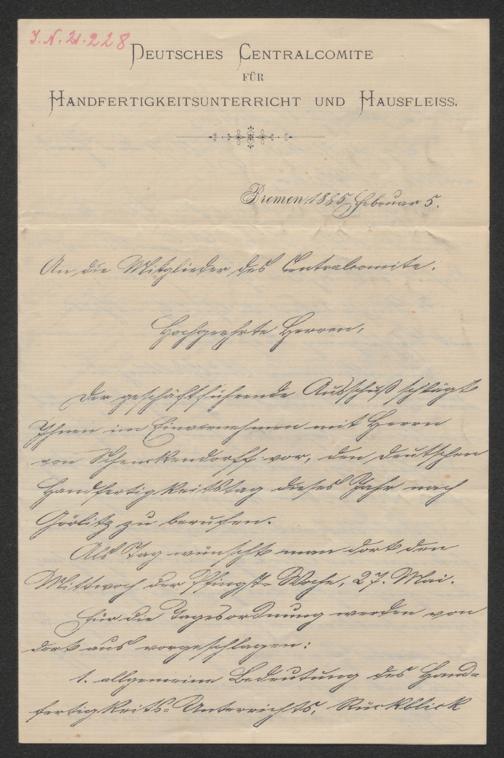 J. N. 21.228
DEUTSCHES CENTRALCOMITE
FÜR
HANDFERTIGKEITSUNTERRICHT UND HAUSFLEISS.
Bremen, 1885, Februar 5.
An die Mitglieder des Centralcomite.
Hochgeehrte Herren,
Der geschäftführende Ausschuß schlägt
Ihnen im Einvernehmen mit Herrn
von Schenckendorff vor, den deutschen
Handfertigkeitstag dieses Jahr nach
Görlitz zu berufen.
Als Tag wünscht man dort den
Mittwoch der Pfingst-Woche, 27. Mai.
Für die Tagesordnung werden von
dort aus vorgeschlagen:
1. allgemeine Bedeutung des Hand-
fertigkeits-Unterrichts, Rückblick